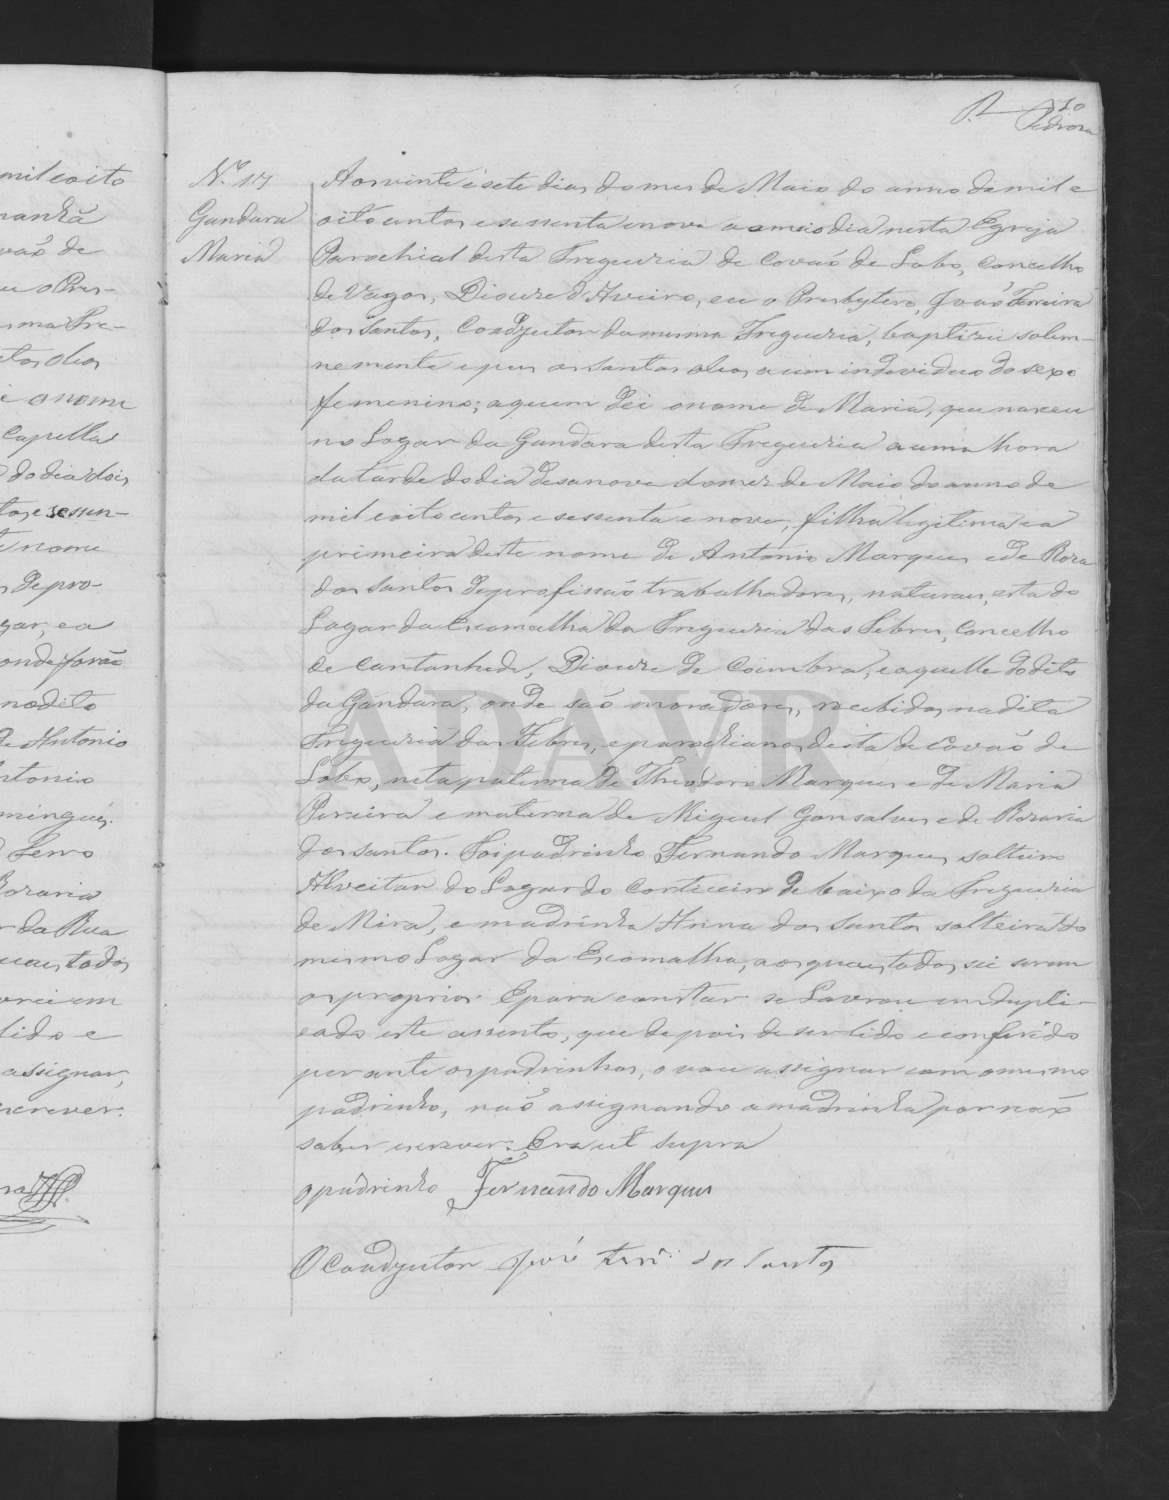 10
Pedrosa
mil e oito
manhã
vão de
u o Pres-
ma Fre-
tos oleos
o nome
Capella
do dia dois
tos e sessen-
nome
de pro-
gar, e a
onde forão
no dito
de Antonio
Antonio
mingues.
Serro
Rozaria
da Rua
quaes todos
vrei em
lido e
assignar,
screver.
Nº 17
Gandara
Maria
Aos vinte e sete dias do mes de Maio do anno de mil e
oito centos e sessenta e nove ao meio dia nesta Egreja
Parochial desta Freguezia de Covaõ de Lobo, Concelho
de Vagos, Diouze d'Aveiro, eu o Presbytero, João Ferreira
dos Santos, Coadjutor da mesma Freguezia, baptizei solem-
nemente e pus os santos oleos a um individuo do sexo
femenino; a quem dei o nome de Maria, que nasceu
no Logar da Gandara desta Freguezia a uma hora
da tarde do dia desanove do mez de Maio do anno de
mil e oito centos e sessenta e nove, filha legitima e a
primeira deste nome de Antonio Marques e de Roza
dos Santos de profissaõ trabalhadores, naturaes, esta do
Logar da Escomalha da Freguezia das Febres, Concelho
de Cantanhede, Diouze de Coimbra, e aquelle do dito
da Gandara, onde saõ moradores, recebidos na dita
Freguezia das Febres, e parochianos desta de Covaõ de
Lobo, neta paterna de Theodoro Marques e de Maria
Pereira e materna de Miguel Gonsalves e de Rozaria
dos santos. Foi padrinho Fernando Marques solteiro
Alveitar do Logar do Corticeiro de baixo da Freguezia
de Mira, e madrinha Anna dos Santos solteira do
mesmo Logar da Escomalha, aos quaes todos sei serem
os proprios. E para constar se Lavrou em dupli-
cado este assento, que depois de ser lido e conferido
perante os padrinhos, o vou assignar com o mesmo
padrinho, naõ assignando a madrinha por naõ
saber escrever. Era ut supra
O padrinho Fernando Marques
O Coadjutor João Ferrª dos Santos
ADAVR